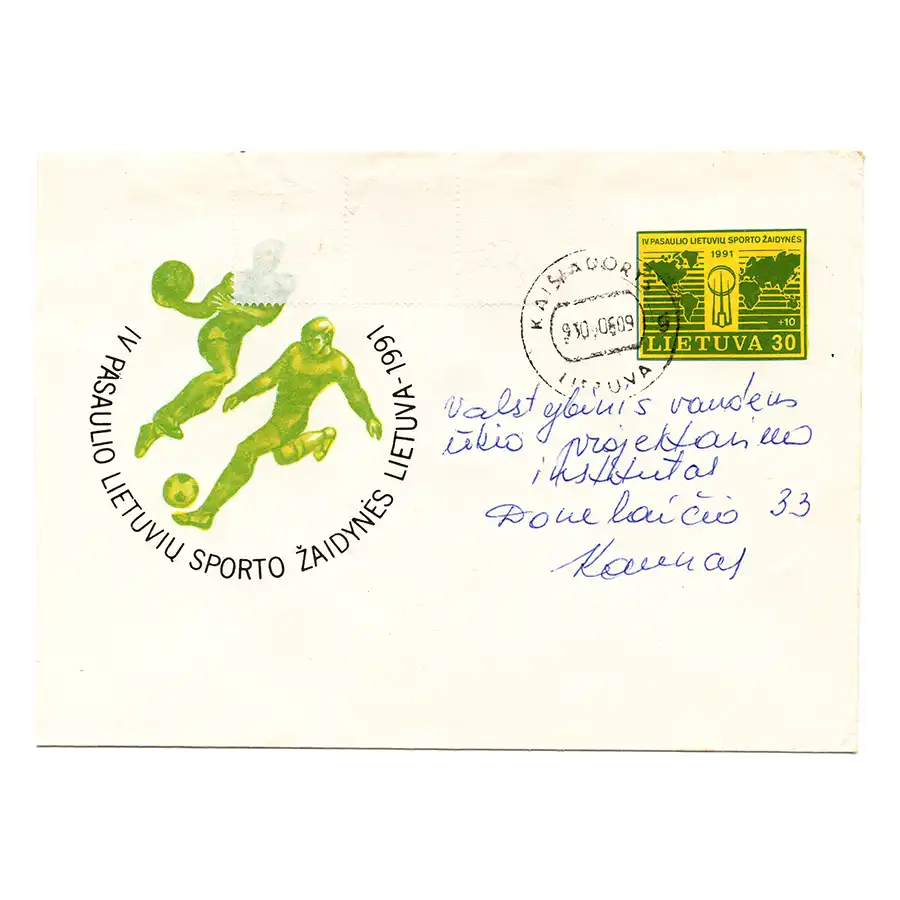 IV PASAULIO LIETUVIŲ SPORTO ŽAIDYNĖS LIETUVA-1991
IV PASAULIO LIETUVIŲ SPORTO ŽAIDYNĖS
1991
+10
LIETUVA 30
LIETUVA
Valstybinis vandens
ūkio projektavimo
institutas
Donelaičio 33
Kaunas